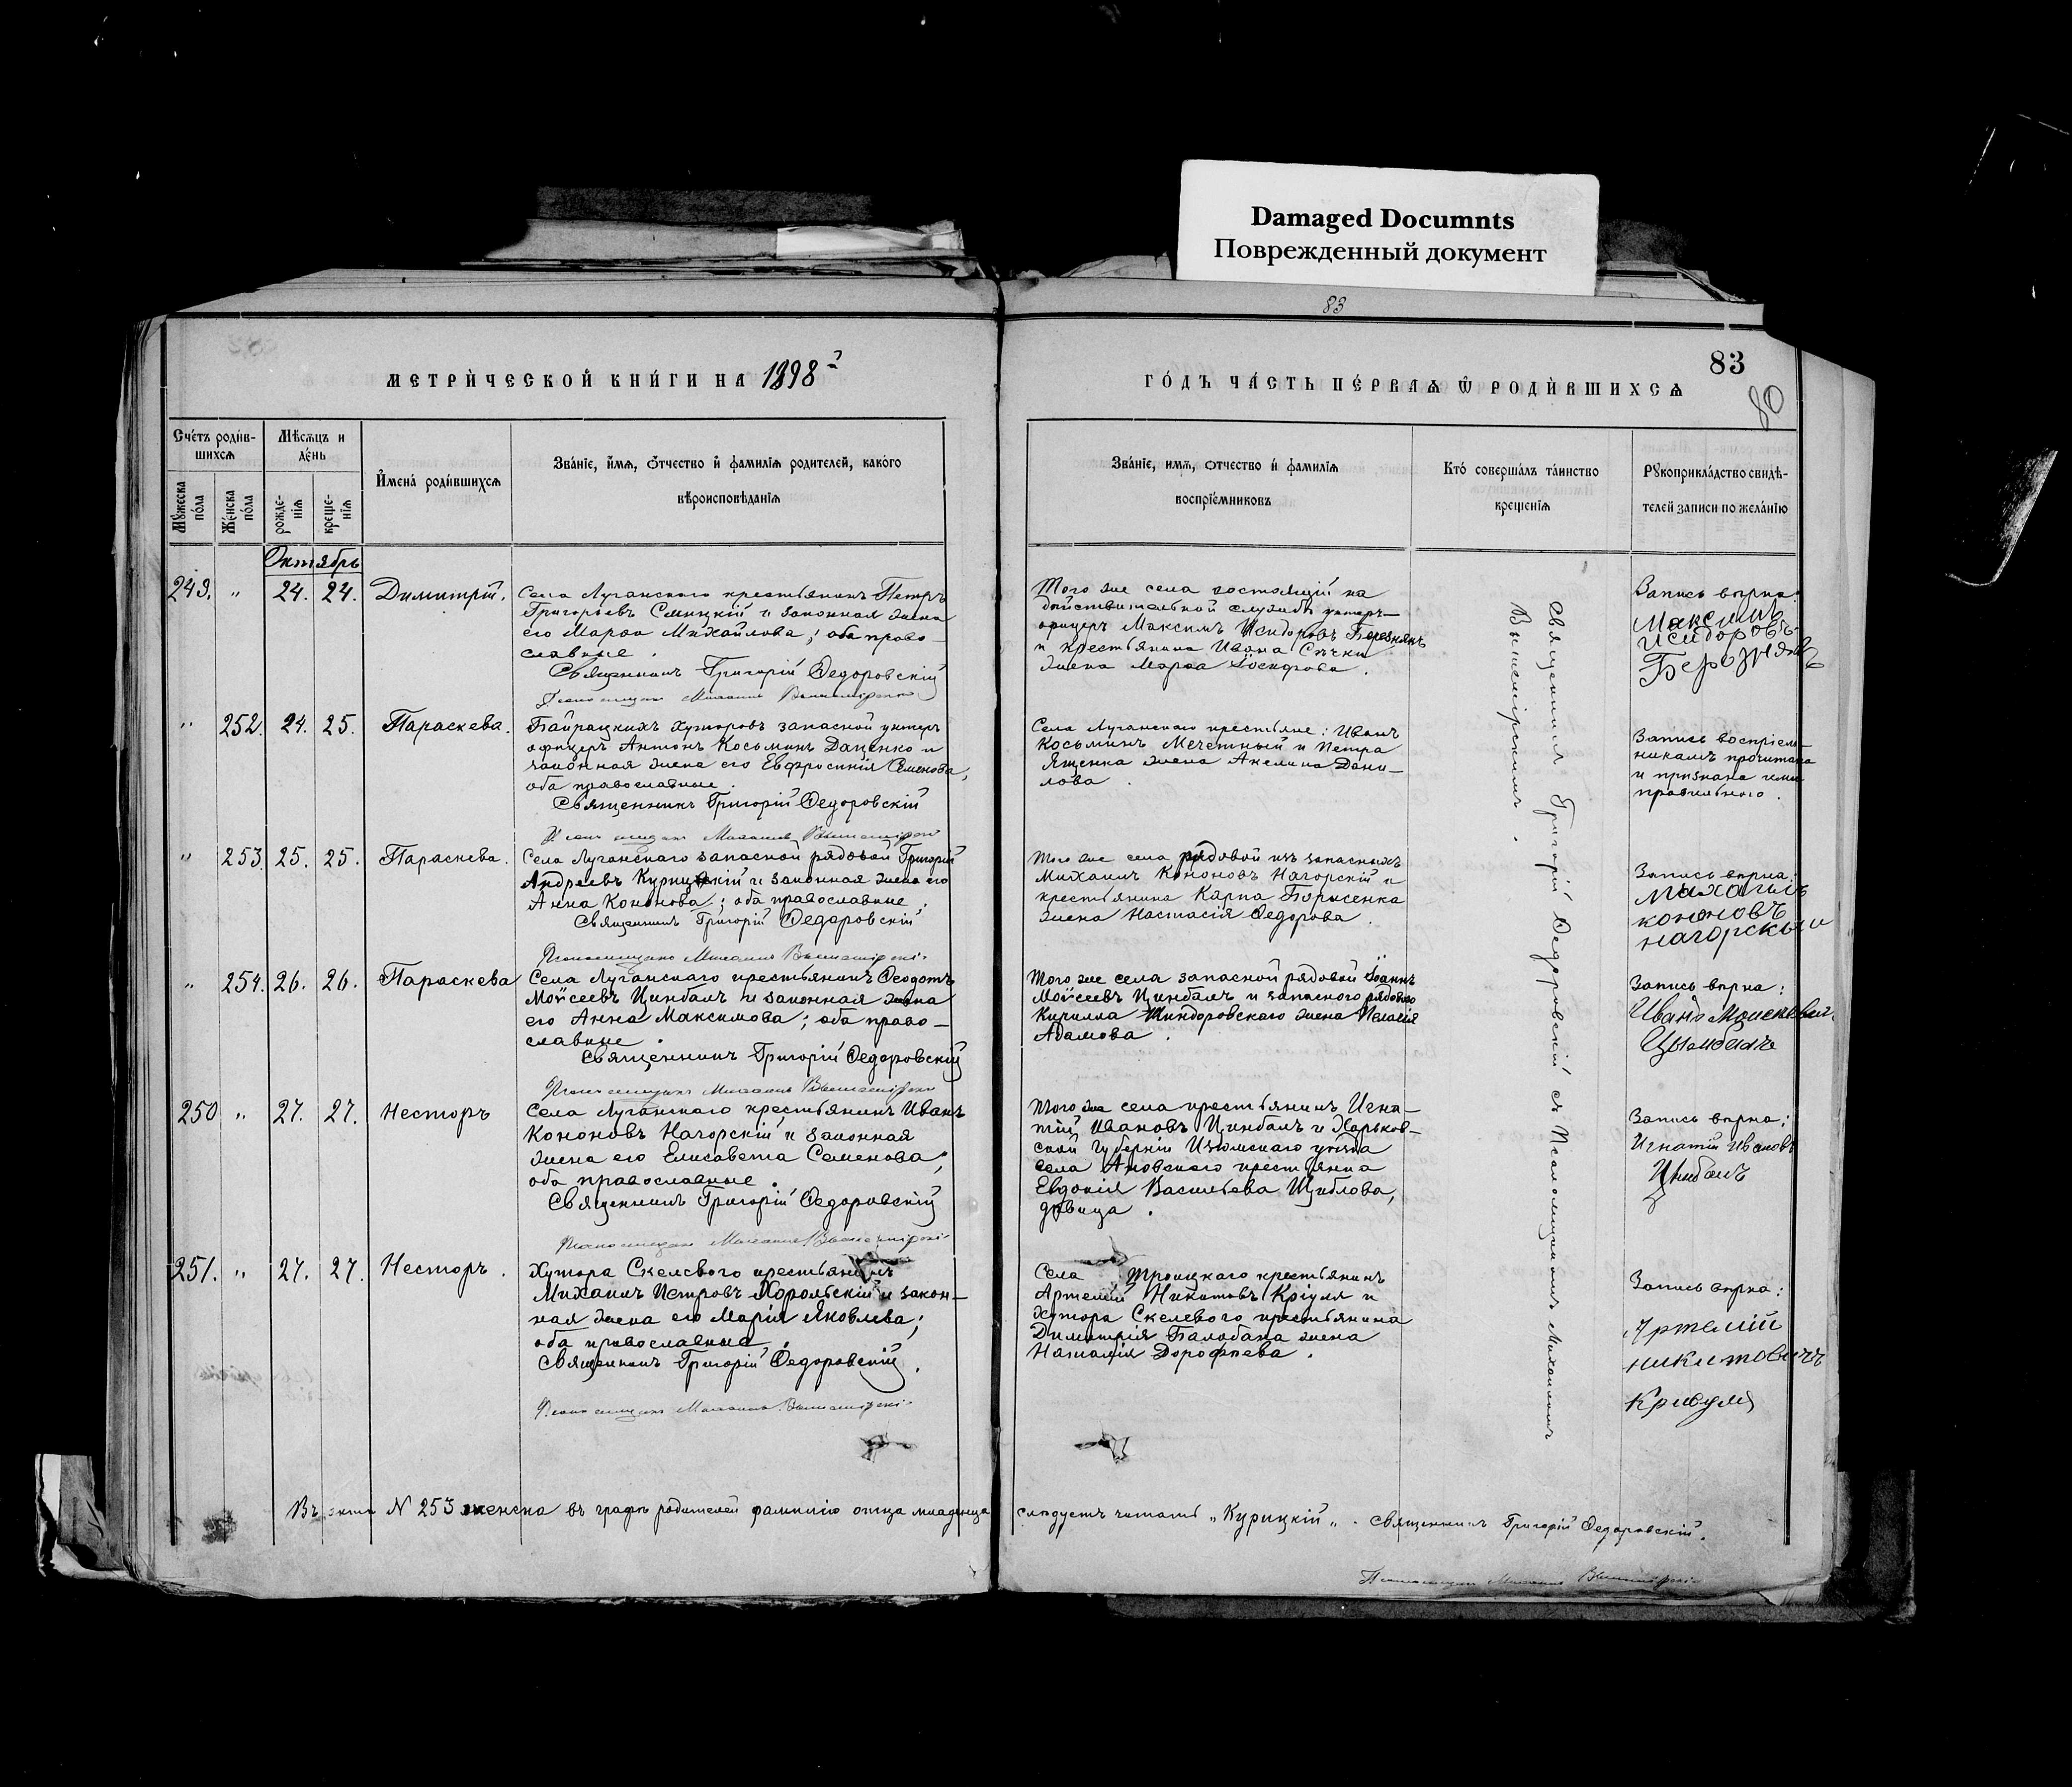 Damaged Documnts
Поврежденный документ
83
83
80
МЕТРИЧЕСКОЙ КНИГИ НА 1898й
ГОДЪ ЧАСТЬ ПЕРВАЯ Ѡ РОДИВШИХСЯ
Счетъ родив-
шихся
Мѣсяцъ и
день
Имена родившихся
Званіе, имя, отчество и фамилія родителей, какого
вѣроисповѣданія
Званіе, имя, отчество и фамилія
воспріемниковъ
Кто совершалъ таинство
крещенія
Рукоприкладство свидѣ-
телей записи по желанію
Мужеска
пола
Женска
пола
рожде-
нія
креще-
нія
Октябрь
249. " 24. 24. Димитрій.
Села Луганскаго крестьянинъ Петръ
Григорьевъ и законная жена
его Марѳа Михайлова; оба право-
славные.
Священникъ Григорій Ѳедоровскій
Псаломщикъ Михаилъ Вышемірскій
Того же села состоящій на
дѣйствительной службѣ унтеръ-
офицеръ Максимъ Исидоровъ Березнякъ
и крестьянина Ивана Сѣчки
жена Марѳа Іосифова.
Запись вѣрна:
Максимъ
Исидоровъ
Березнякъ
" 252. 24. 25. Параскева.
Байрацкихъ хуторовъ запасной унтеръ
офицеръ Антонъ Косьминъ Даценко и
законная жена его Евфросинія Семенова,
оба православные.
Священникъ Григорій Ѳедоровскій
Псаломщикъ Михаилъ Вышемірскій
Села Луганскаго крестьяне: Иванъ
Косьминъ Мечетный и Петра
Ященка жена Акелина Дани-
лова.
Запись воспріем-
никамъ прочитана
и признана ими
правильною.
" 253. 25. 25. Параскева.
Села Луганскаго запасной рядовой Григорій
Андреевъ Курицкій и законная жена его
Анна Кононова; оба православные.
Священникъ Григорій Ѳедоровскій
Псаломщикъ Михаилъ Вышемірскій
Того же села рядовой изъ запасныхъ
Михаилъ Кононовъ Нагорскій и
крестьянина Карпа Борисенка
жена Настасія Ѳедорова.
Запись вѣрна:
Михаилъ
кононовъ
нагорскый
" 254. 26. 26. Параскева
Села Луганскаго крестьянинъ Ѳеодотъ
Моѵсеевъ Цинбалъ и законная жена
его Анна Максимова; оба право-
славные.
Священникъ Григорій Ѳедоровскій
Псаломщикъ Михаилъ Вышемірскій
Того же села запасной рядовой Іоаннъ
Моѵсеевъ Цинбалъ и запаснаго рядового
Кирилла жена Пелагія
Адамова.
Запись вѣрна:
Иванъ
Цымбалъ
250 " 27. 27. Несторъ
Села Луганскаго крестьянинъ Иванъ
Кононовъ Нагорскій и законная
жена его Елисавета Семенова,
оба православные.
Священникъ Григорій Ѳедоровскій
Псаломщикъ Михаилъ Вышемірскій
Того же села крестьянинъ Игна-
тій Ивановъ Цинбалъ и Харьков-
ской губерніи Изюмскаго уѣзда
села крестьянка
Евдокія Васильева Щиблова,
дѣвица.
Запись вѣрна:
Игнатій Ивановъ
Цинбалъ
251. " 27. 27. Несторъ.
Хутора Скелевого крестьянинъ
Михаилъ Петровъ Хорольскій и закон-
ная жена его Марія Яковлева;
оба православные.
Священникъ Григорій Ѳедоровскій.
Псаломщикъ Михаилъ Вышемірскій
Села Троицкаго крестьянинъ
Артемій Никитовъ Крівуля и
хутора Скелевого крестьянина
Димитрія Балабана жена
Наталія Дорофѣева.
Запись вѣрна:
Артемій
никитовичъ
Кривуля
Священникъ Григорій Ѳедоровскій съ Псаломщикомъ Михаиломъ
Вышемірскимъ.
Въ актѣ № 253 женска въ графѣ родителей фамилію отца младенца слѣдуетъ читать „Курицкій“. Священникъ Григорій Ѳедоровскій.
Псаломщикъ Михаилъ Вышемірскій